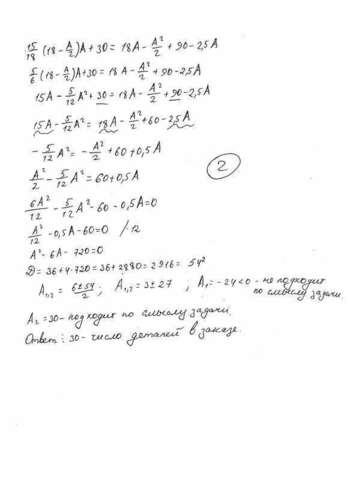 15/18 (18 - A/2)A + 30 = 18A - A²/2 + 90 - 2,5A
5/6 (18 - A/2)A + 30 = 18A - A²/2 + 90 - 2,5A
15A - 5/12 A² + 30 = 18A - A²/2 + 90 - 2,5A
15A - 5/12 A² = 18A - A²/2 + 60 - 2,5A
- 5/12 A² = - A²/2 + 60 + 0,5A
2
A²/2 - 5/12 A² = 60 + 0,5A
6A²/12 - 5/12 A² - 60 - 0,5A = 0
A²/12 - 0,5A - 60 = 0 /·12
A² - 6A - 720 = 0
D = 36 + 4·720 = 36 + 2880 = 2916 = 54²
A₁,₂ = (6 ± 54)/2 ; A₁,₂ = 3 ± 27 , A₁ = -24 < 0 - не подходит
по смыслу задачи.
A₂ = 30 - подходит по смыслу задачи.
Ответ: 30 - число деталей в заказе.